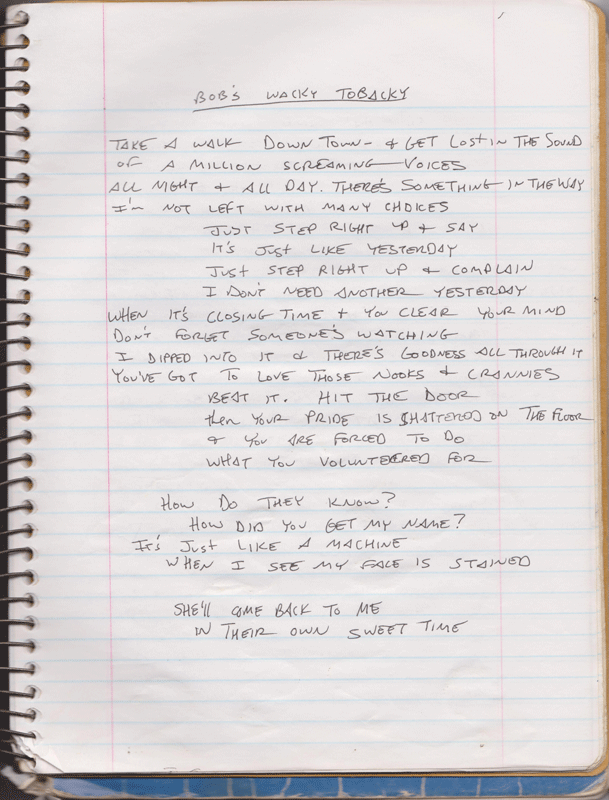 BOB'S WACKY TOBACKY
TAKE A WALK DOWN TOWN - & GET LOST IN THE SOUND
OF A MILLION SCREAMING VOICES
ALL NIGHT & ALL DAY. THERE'S SOMETHING IN THE WAY
I'M NOT LEFT WITH MANY CHOICES
JUST STEP RIGHT UP & SAY
IT'S JUST LIKE YESTERDAY
JUST STEP RIGHT UP & COMPLAIN
I DON'T NEED ANOTHER YESTERDAY
WHEN IT'S CLOSING TIME & YOU CLEAR YOUR MIND
DON'T FORGET SOMEONE'S WATCHING
I DIPPED INTO IT & THERE'S GOODNESS ALL THROUGH IT
YOU'VE GOT TO LOVE THOSE NOOKS & CRANNIES
BEAT IT. HIT THE DOOR
THEN YOUR PRIDE IS SHATTERED ON THE FLOOR
& YOU ARE FORCED TO DO
WHAT YOU VOLUNTEERED FOR
HOW DO THEY KNOW?
HOW DID YOU GET MY NAME?
IT'S JUST LIKE A MACHINE
WHEN I SEE MY FACE IS STAINED
SHE'LL COME BACK TO ME
IN THEIR OWN SWEET TIME